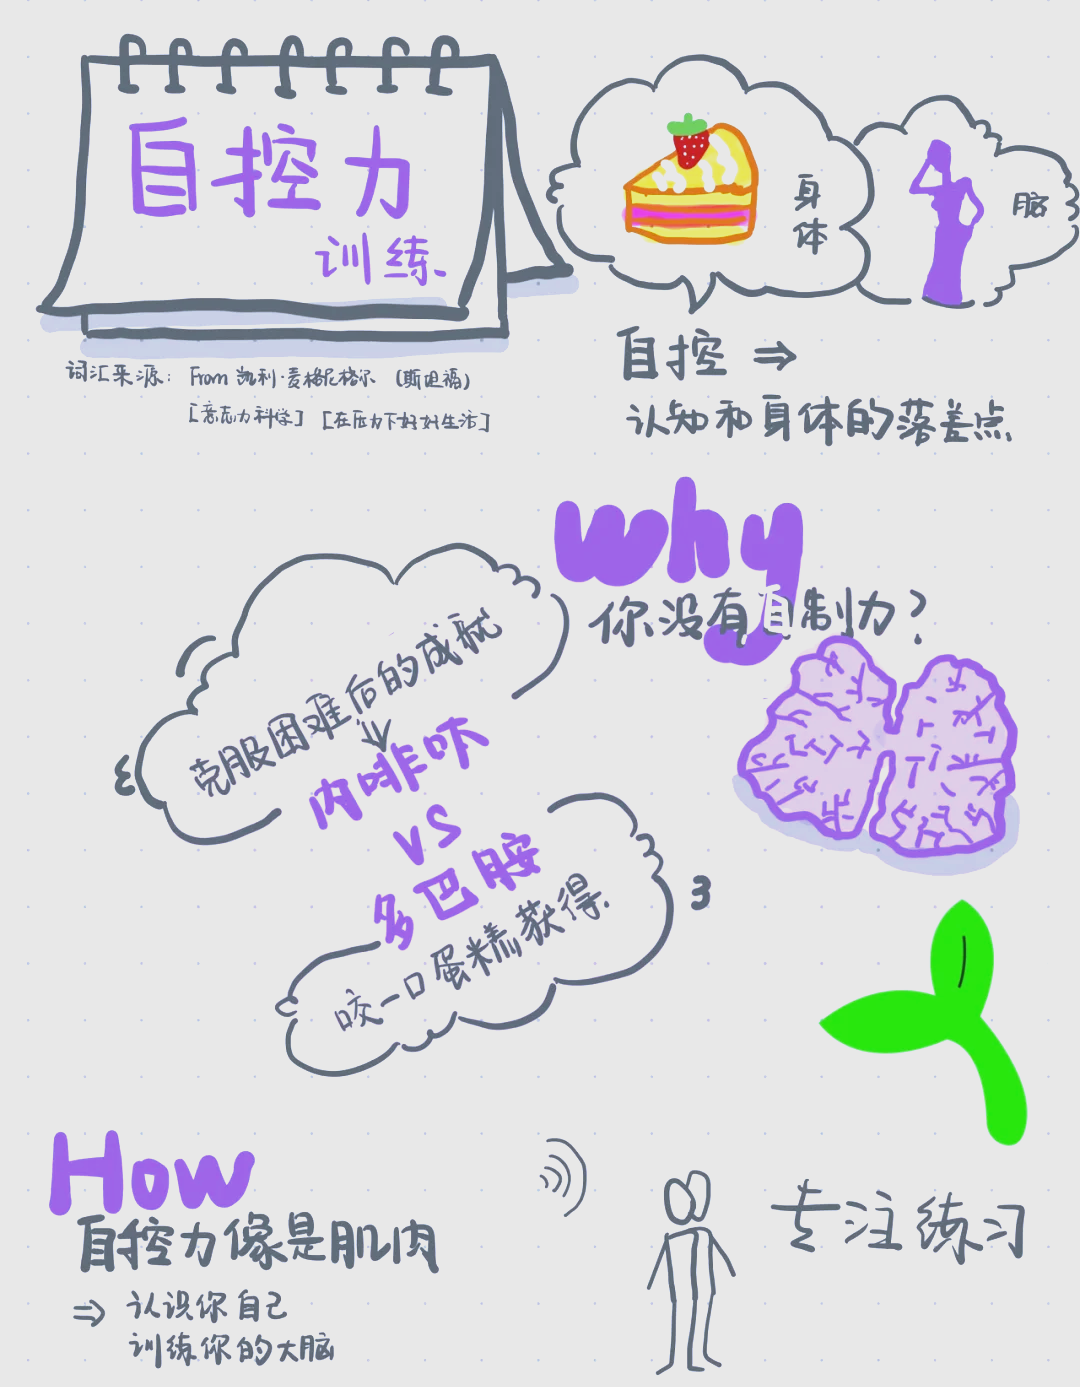 自控力
训练.
词汇来源: From 凯利·麦格尼格尔 (斯坦福)
[意志力科学] [在压力下好好生活]
身体
脑
自控 ⇒
认知和身体的落差点
Why
你没有自制力?
克服困难后的成就
↓
内啡呋
VS
多巴胺
咬一口蛋糕获得.
How
自控力像是肌肉
⇒ 认识你自己
训练你的大脑
专注练习